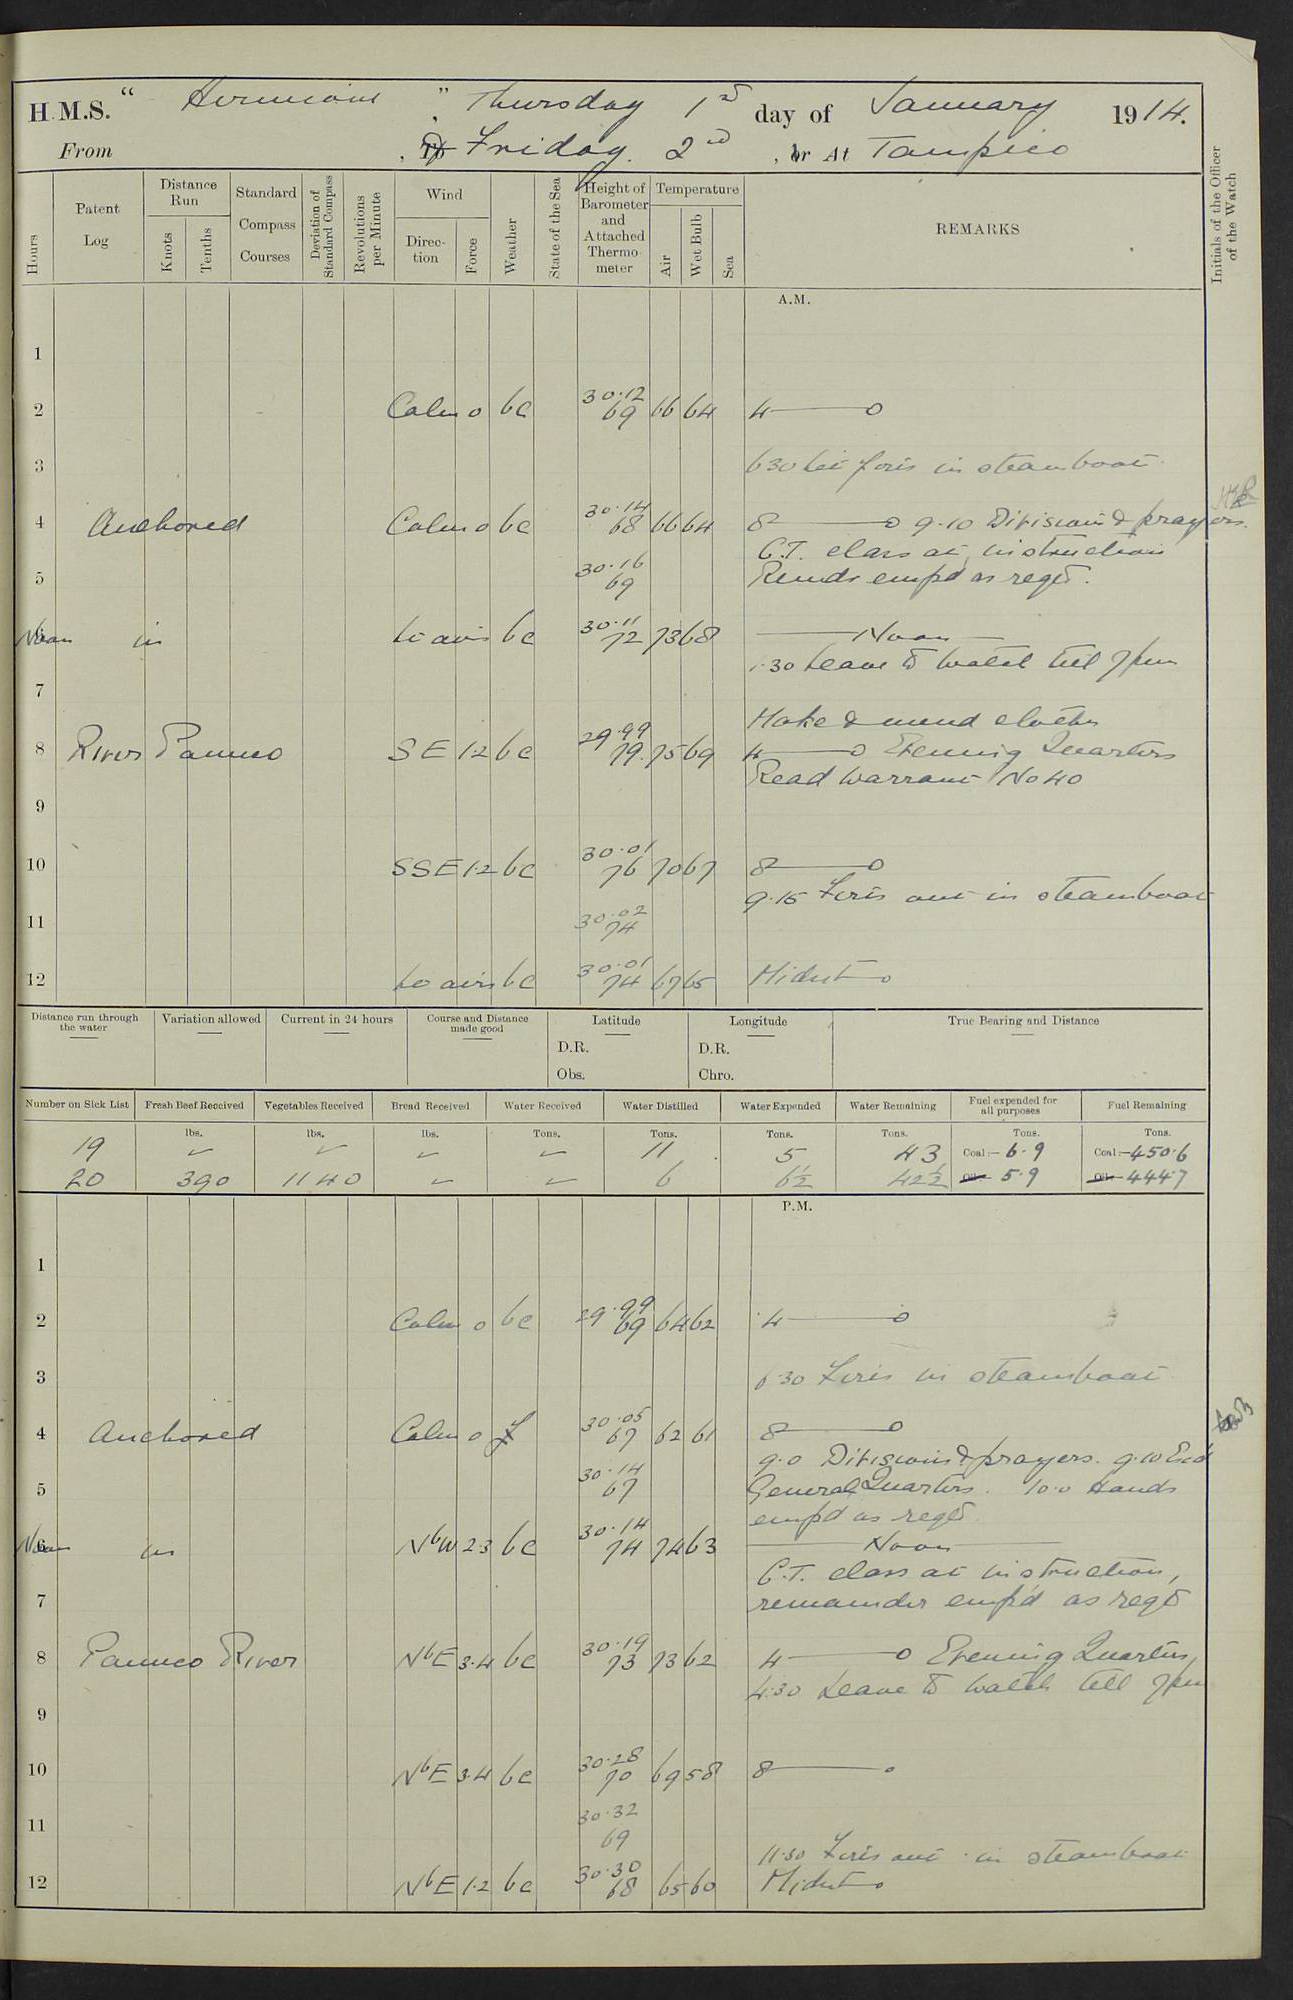 H.M.S. "Hermione" Thursday 1st day of January 1914.
From , To & Friday 2nd , or At Tampico
Hours
Patent Log
Distance Run
Knots
Tenths
Standard Compass Courses
Deviation of Standard Compass
Revolutions per Minute
Wind
Direction
Force
Weather
State of the Sea
Height of Barometer and Attached Thermometer
Temperature
Air
Wet Bulb
Sea
REMARKS
Initials of the Officer of the Watch
A.M.
1
2 Calm 0 bc 30.12 69 66 64 4 —— 0
3 630 Lit fires in steamboat
4 Anchored Calm 0 bc 30.14 68 66 64 8 —— 0 9.10 Divisions & prayers.
C.T. class at instruction
5 30.16 69 Remdr emp'd as reqd.
6 Noon in Lt airs bc 30.11 72 73 68 —— Noon ——
1.30 Leave to watch till 7pm
7
Make & mend clothes
8 River Panuco SE 1.2 bc 29.99 79 75 69 4 —— 0 Evening Quarters
Read Warrant No 40
9
10 SSE 1.2 bc 30.01 76 70 67 8 —— 0
9.15 Fires out in steamboat
11 30.02 74
12 Lt airs bc 30.01 74 67 65 Midnt —— 0
Distance run through the water
Variation allowed
Current in 24 hours
Course and Distance made good
Latitude
D.R.
Obs.
Longitude
D.R.
Chro.
True Bearing and Distance
Number on Sick List
Fresh Beef Received
Vegetables Received
Bread Received
Water Received
Water Distilled
Water Expended
Water Remaining
Fuel expended for all purposes
Fuel Remaining
lbs. lbs. lbs. Tons. Tons. Tons. Tons. Tons. Tons.
19 11 5 43 Coal:— 6.9 Coal:— 450.6
20 390 1140 6 6½ 42½ Oil:— 5.9 Oil:— 444.7
P.M.
1
2 Calm 0 bc 29.99 69 64 62 4 —— 0
3 6.30 Fires in steamboat
4 Anchored Calm 0 f 30.05 67 62 61 8 —— 0
9.0 Divisions & prayers. 9.10 Exd
5 30.14 67 General Quarters. 10.0 Hands
emp'd as reqd
6 Noon in NbW 2.3 bc 30.14 74 74 63 —— Noon ——
C.T. class at instruction,
7 remainder emp'd as reqd
8 Panuco River NbE 3.4 bc 30.19 73 73 62 4 —— 0 Evening Quarters,
4.30 Leave to watch till 7pm
9
10 NbE 3.4 bc 30.28 70 69 58 8 —— 0
11 30.32 69
11.30 Fires out in steamboat
12 NbE 1.2 bc 30.30 68 65 60 Midnt —— 0